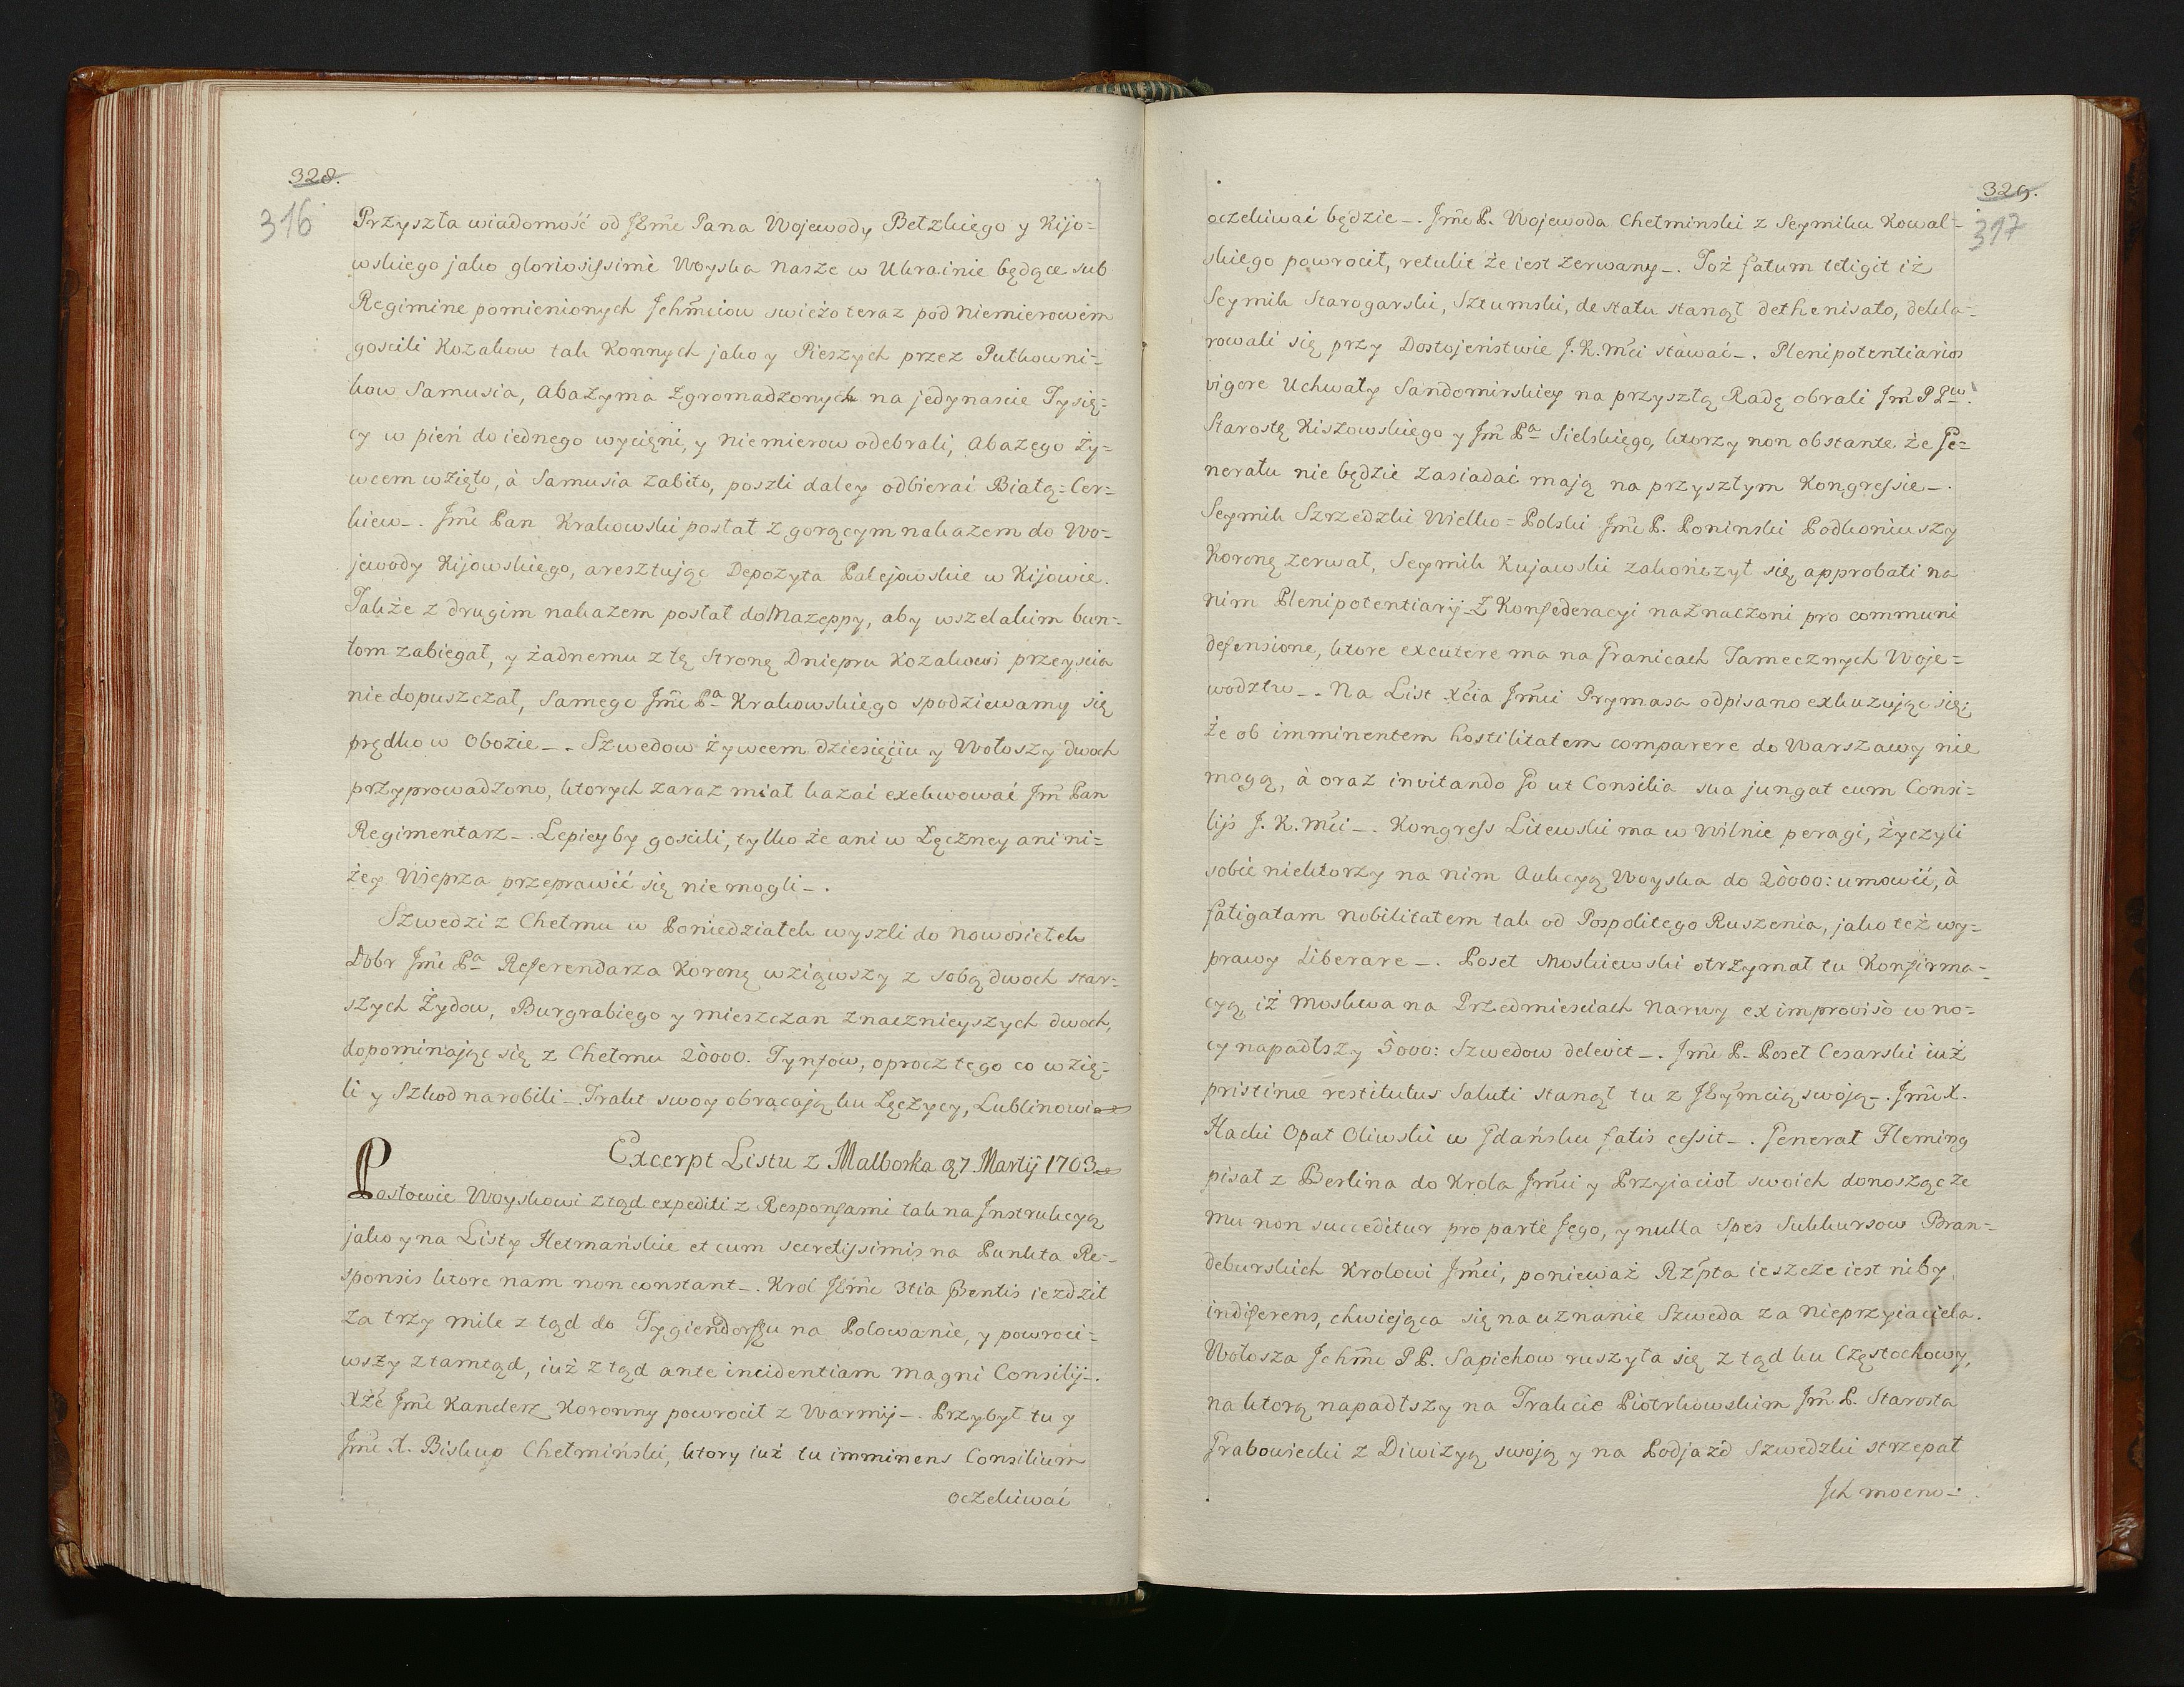 328.
316
Przyszła wiadomość od JEm̃e Pana Wojewody Bełzkiego y Kijo=
wskiego jako gloriosissimè Woyska Nasze w Ukrainie będące sub
Regimine pomienionych Jchm̃ciow swieżo teraz pod Niemierowem
goscili Kozakow tak Konnych jako y Pieszych przez Pułkowni=
kow Samusia, Abazyma zgromadzonych na jedynascie Tysię=
cy w pień do iednego wycięni, y Niemierow odebrali, Abazego ży=
wcem wzięto, à Samusia zabito, poszli daley odbierać Białą=Cer=
kiew_. Jm̃e Pan Krakowski posłał z gorącym nakazem do Wo=
jewody Kijowskiego, aresztując Depozyta Palejowskie w Kijowie.
Także z drugim nakazem posłał do Mazeppy, aby wszelakim bun=
tom zabiegał, y żadnemu z tę Stronę Dniepru Kozakowi przeyscia
nie dopuszczał, Samego Jm̃e Pa Krakowskiego spodziewamy się
prędko w Obozie_. Szwedow żywcem dziesięciu y Wołoszy dwoch
przyprowadzono, ktorych zaraz miał kazać exekwować Jm̃ Pan
Regimentarz_. Lepieyby goscili, tylko że ani w Łęczney ani ni=
żey Wieprza przeprawić się nie mogli_.
Szwedzi z Chełmu w Poniedziałek wyszli do Nowosiełek
Dobr Jm̃e Pa Referendarza Koronę wziąwszy z sobą dwoch star=
szych Żydow, Burgrabiego y mieszczan znacznieyszych dwoch,
dopominając się z Chełmu 20000. Tynfow, oprocz tego co wzię=
li y Szkod narobili_. Trakt swoy obracają ku Łęczycy, Lublinowi
Excerpt Listu z Malborka 27 Martij 1703
Posłowie Woyskowi ztąd expediti z Responsami tak na Jnstrukcyą
jako y na Listy Hetmańskie et cum secretissimis na Punkta Re=
sponsis ktore nam non constant_. Krol JEm̃e 3tia Prentis iezdził
za trzy mile z tąd do Tygiendorffu na Polowanie, y powroci=
wszy ztamtąd, iuż z tąd ante incidentiam magni Consilij_.
Xże Jm̃e Kanclerz Koronny powrocił z Warmij_. Przybył tu y
Jm̃e X. Biskup Chełmiński, ktory iuż tu imminens Consilium
oczekiwać
329.
317
oczekiwać będzie_. Jm̃e P. Wojewoda Chełminski z Seymiku Kowal=
skiego powrocił, retulit że iest zerwany_. Toż fatum tetigit iż
Seymik Starogarski, Sztumski, de statu stanął dethenisato, dekla=
rowali się przy Dostojeństwie J.K.Mći stawać_. Plenipotentiarios
vigore Uchwały Sandomirskiey na przyszłą Radę obrali Jm̃ PPw.
Starostę Kiszowskiego y Jm̃ Pa Sielskiego, ktorzy non obstante że Ge=
nerału nie będzie zasiadać mają na przyszłym Kongressie_.
Seymik Szrzedzki Wielko=Polski Jm̃e P. Poninski Podkoniuszy
Koronę zerwał, Seymik Kujawski zakończył się, approbati na
nim Plenipotentiarij z Konfederacyi naznaczoni pro communi
defensione, ktore excutere ma na Granicach Tamecznych Woje=
wodztw_. Na List Xcia Jm̃ci Prymasa odpisano exkuzując się;
że ob imminentem hostilitatem comparere do Warszawy nie
mogą, à oraz invitando Go ut Consilia sua jungat cum Consi=
lijs J.K.Mći_. Kongress Litewski ma w Wilnie peragi, życzyli
sobie niektorzy na nim Aukcyą Woyska do 20000: umowić, à
fatigatam Nobilitatem tak od Pospolitego Ruszenia, jako też wy=
prawy liberare_. Poseł Moskiewski otrzymał tu Konfirma=
cyą, iż Moskwa na Przedmiesciach Narwy ex improviso w no=
cy napadłszy 5000: Szwedow delevit_. Jm̃e P. Poseł Cesarski iuż
pristinæ restitutus Saluti stanął tu z JEymcią swoją_. Jm̃e X.
Hacki Opat Oliwski w Gdańsku fatis cessit_. Generał Fleming
pisał z Berlina do Krola Jm̃ci y Przyiacioł swoich donosząc że
mu non succeditur pro parte Jego, y nulla Spes Sukkursow Bran=
deburskich Krolowi Jm̃ci, ponieważ Rzpta ieszcze iest niby
indiferens, chwiejąca się na uznanie Szweda za Nieprzyiaciela.
Wołosza Jchm̃e PP. Sapiehow ruszyła się z tąd ku Częstochowy,
na ktorą napadłszy na Trakcie Piotrkowskim Jm̃ P. Starosta
Grabowiecki z Diwizyą swoją y na Podjazd Szwedzki strzepał
Jch mocno_.